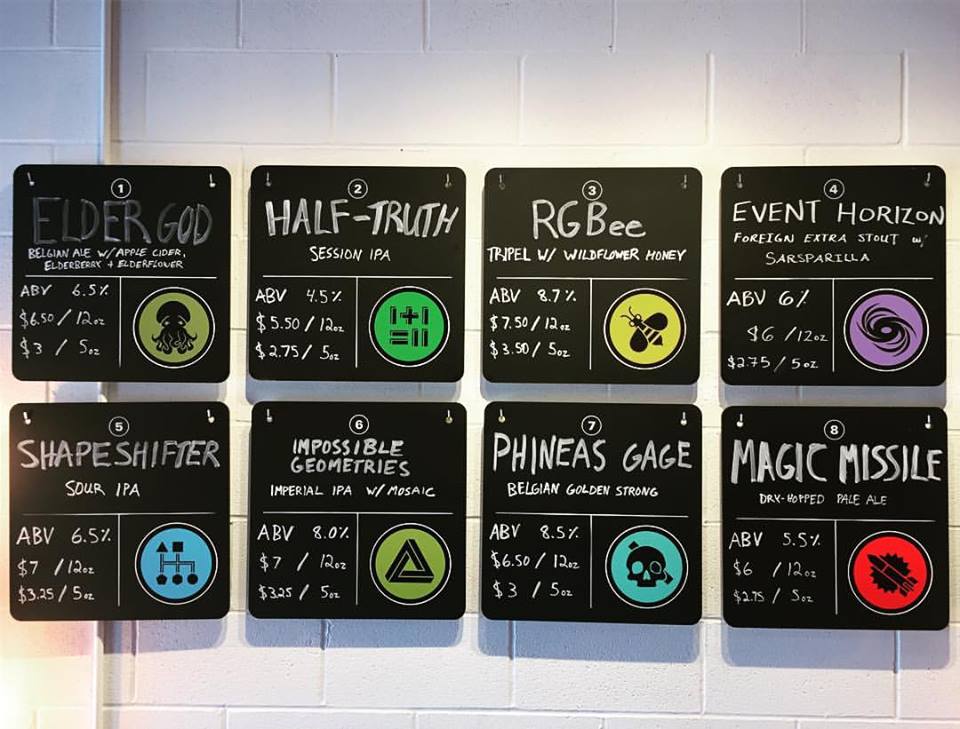 1
ELDER GOD
BELGIAN ALE W/APPLE CIDER,
ELDERBERRY + ELDERFLOWER
ABV 6.5%
$6.50 / 12oz
$3 / 5oz
2
HALF-TRUTH
SESSION IPA
ABV 4.5%
$5.50 / 12oz
$2.75 / 5oz
3
RGBee
TRIPEL W/ WILDFLOWER HONEY
ABV 8.7%
$7.50 / 12oz
$3.50 / 5oz
4
EVENT HORIZON
FOREIGN EXTRA STOUT W/
SARSPARILLA
ABV 6%
$6 / 12oz
$2.75 / 5oz
5
SHAPESHIFTER
SOUR IPA
ABV 6.5%
$7 / 12oz
$3.25 / 5oz
6
IMPOSSIBLE
GEOMETRIES
IMPERIAL IPA W/ MOSAIC
ABV 8.0%
$7 / 12oz
$3.25 / 5oz
7
PHINEAS GAGE
BELGIAN GOLDEN STRONG
ABV 8.5%
$6.50 / 12oz
$3 / 5oz
8
MAGIC MISSILE
DRY-HOPPED PALE ALE
ABV 5.5%
$6 / 12oz
$2.75 / 5oz